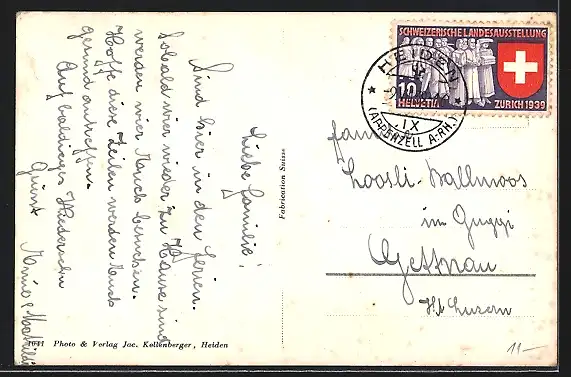 Liebe Familie!
Sind hier in den Ferien.
Sobald wir wieder zu Hause sind
werden wir Euch besuchen.
Hoffe diese Zeilen werden Euch
gesund antreffen.
Auf baldiges Wiedersehn
Grüsst
Fabrication Suisse
1941 Photo & Verlag Jac. Kellenberger, Heiden
SCHWEIZERISCHE LANDESAUSSTELLUNG
10
HELVETIA
ZÜRICH 1939
HEIDEN
IX
(APPENZELL A.-RH.)
Fam.
Loosli-Wallmoos
im
Gettnau
Kt. Luzern
11-